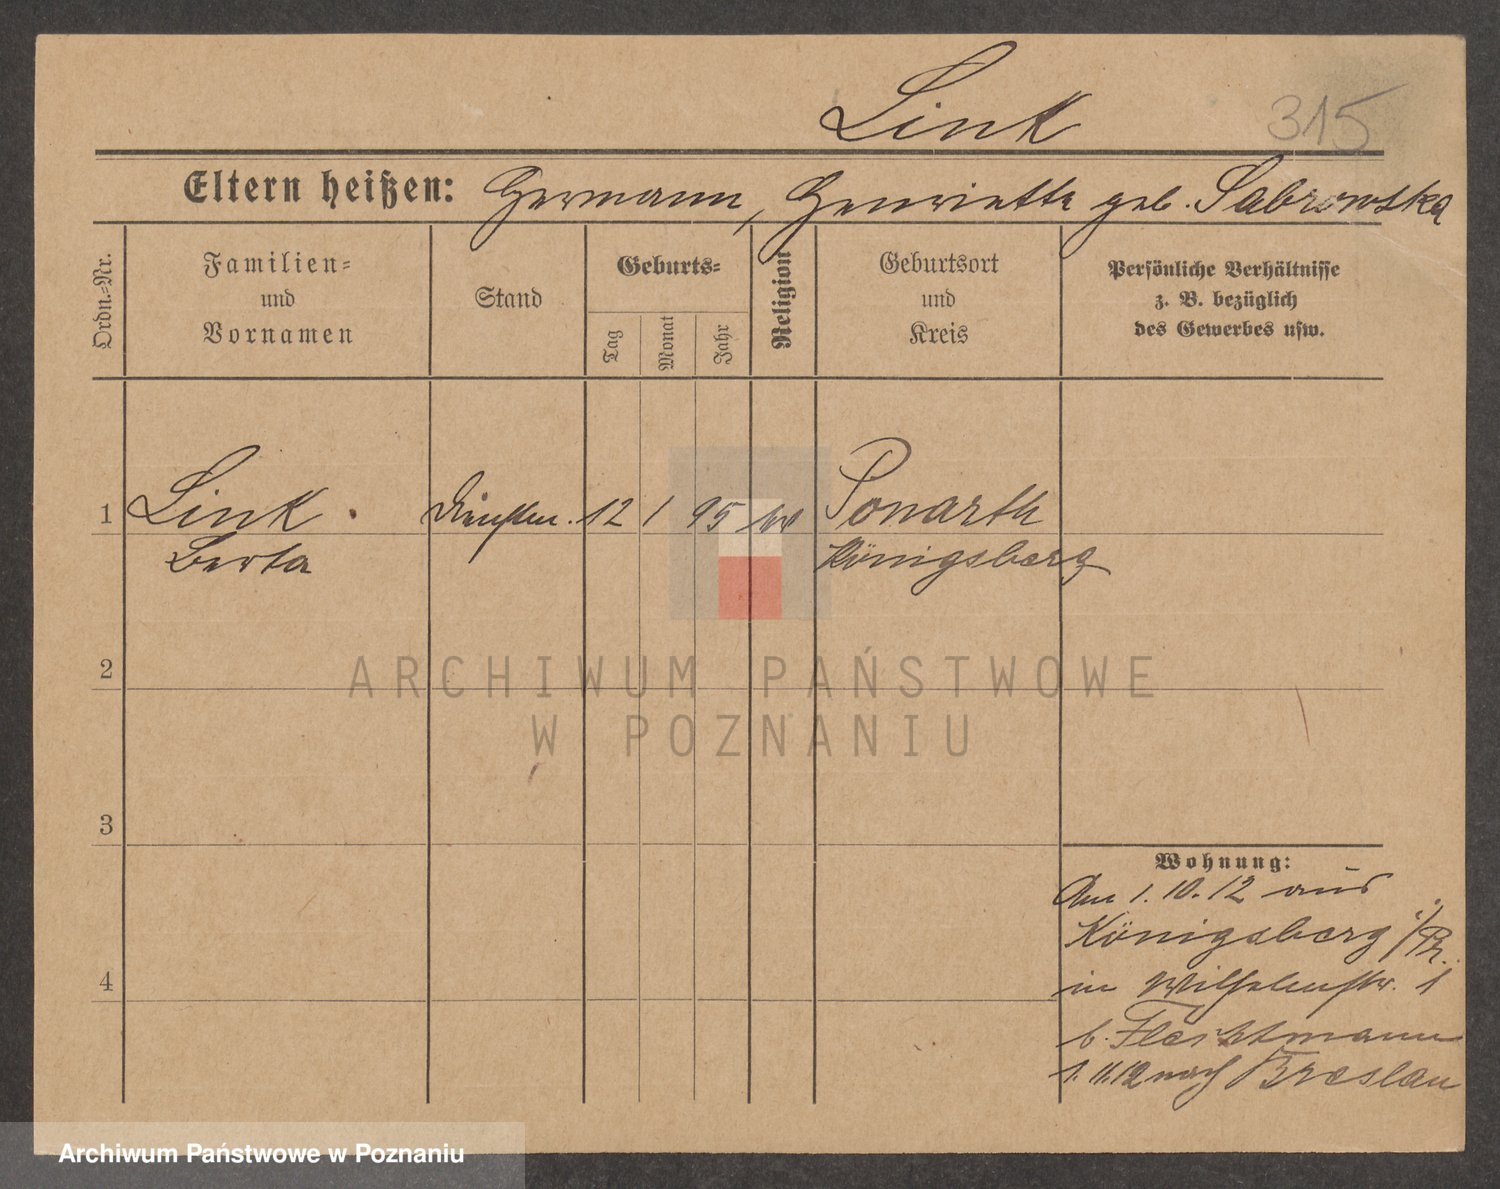 Link 315
Eltern heißen: Hermann, Henriette geb. Sabrowska
Ordn.=Nr.
Familien=
und
Vornamen
Stand
Geburts=
Tag
Monat
Jahr
Religion
Geburtsort
und
Kreis
Persönliche Verhältnisse
z. B. bezüglich
des Gewerbes usw.
1 Link 12 1 95 Ponarth
Berta Königsberg
2
3
4
Wohnung:
Am 1. 10. 12 aus
Königsberg i/Pr.
in Wilhelmstr. 1
b.
1. 11. 12 nach Breslau
ARCHIWUM PAŃSTWOWE
W POZNANIU
Archiwum Państwowe w Poznaniu